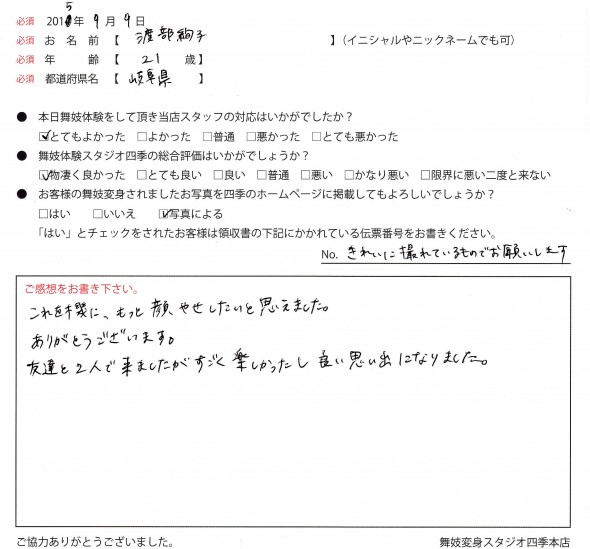 必須 2015年 9月 9日
必須 お名前【 渡部絢子 】（イニシャルやニックネームでも可）
必須 年 齢【 21 歳】
必須 都道府県名【 岐阜県 】
● 本日舞妓体験をして頂き当店スタッフの対応はいかがでしたか？
☑とてもよかった □よかった □普通 □悪かった □とても悪かった
● 舞妓体験スタジオ四季の総合評価はいかがでしょうか？
☑物凄く良かった □とても良い □良い □普通 □悪い □かなり悪い □限界に悪い二度と来ない
● お客様の舞妓変身されましたお写真を四季のホームページに掲載してもよろしいでしょうか？
□はい □いいえ ☑写真による
「はい」とチェックをされたお客様は領収書の下記にかかれている伝票番号をお書きください。
No. きれいに撮れているものでお願いします
ご感想をお書き下さい。
これを機に、もっと顔やせしたいと思えました。
ありがとうございます。
友達と2人で来ましたがすごく楽しかったし良い思い出になりました。
ご協力ありがとうございました。 舞妓変身スタジオ四季本店